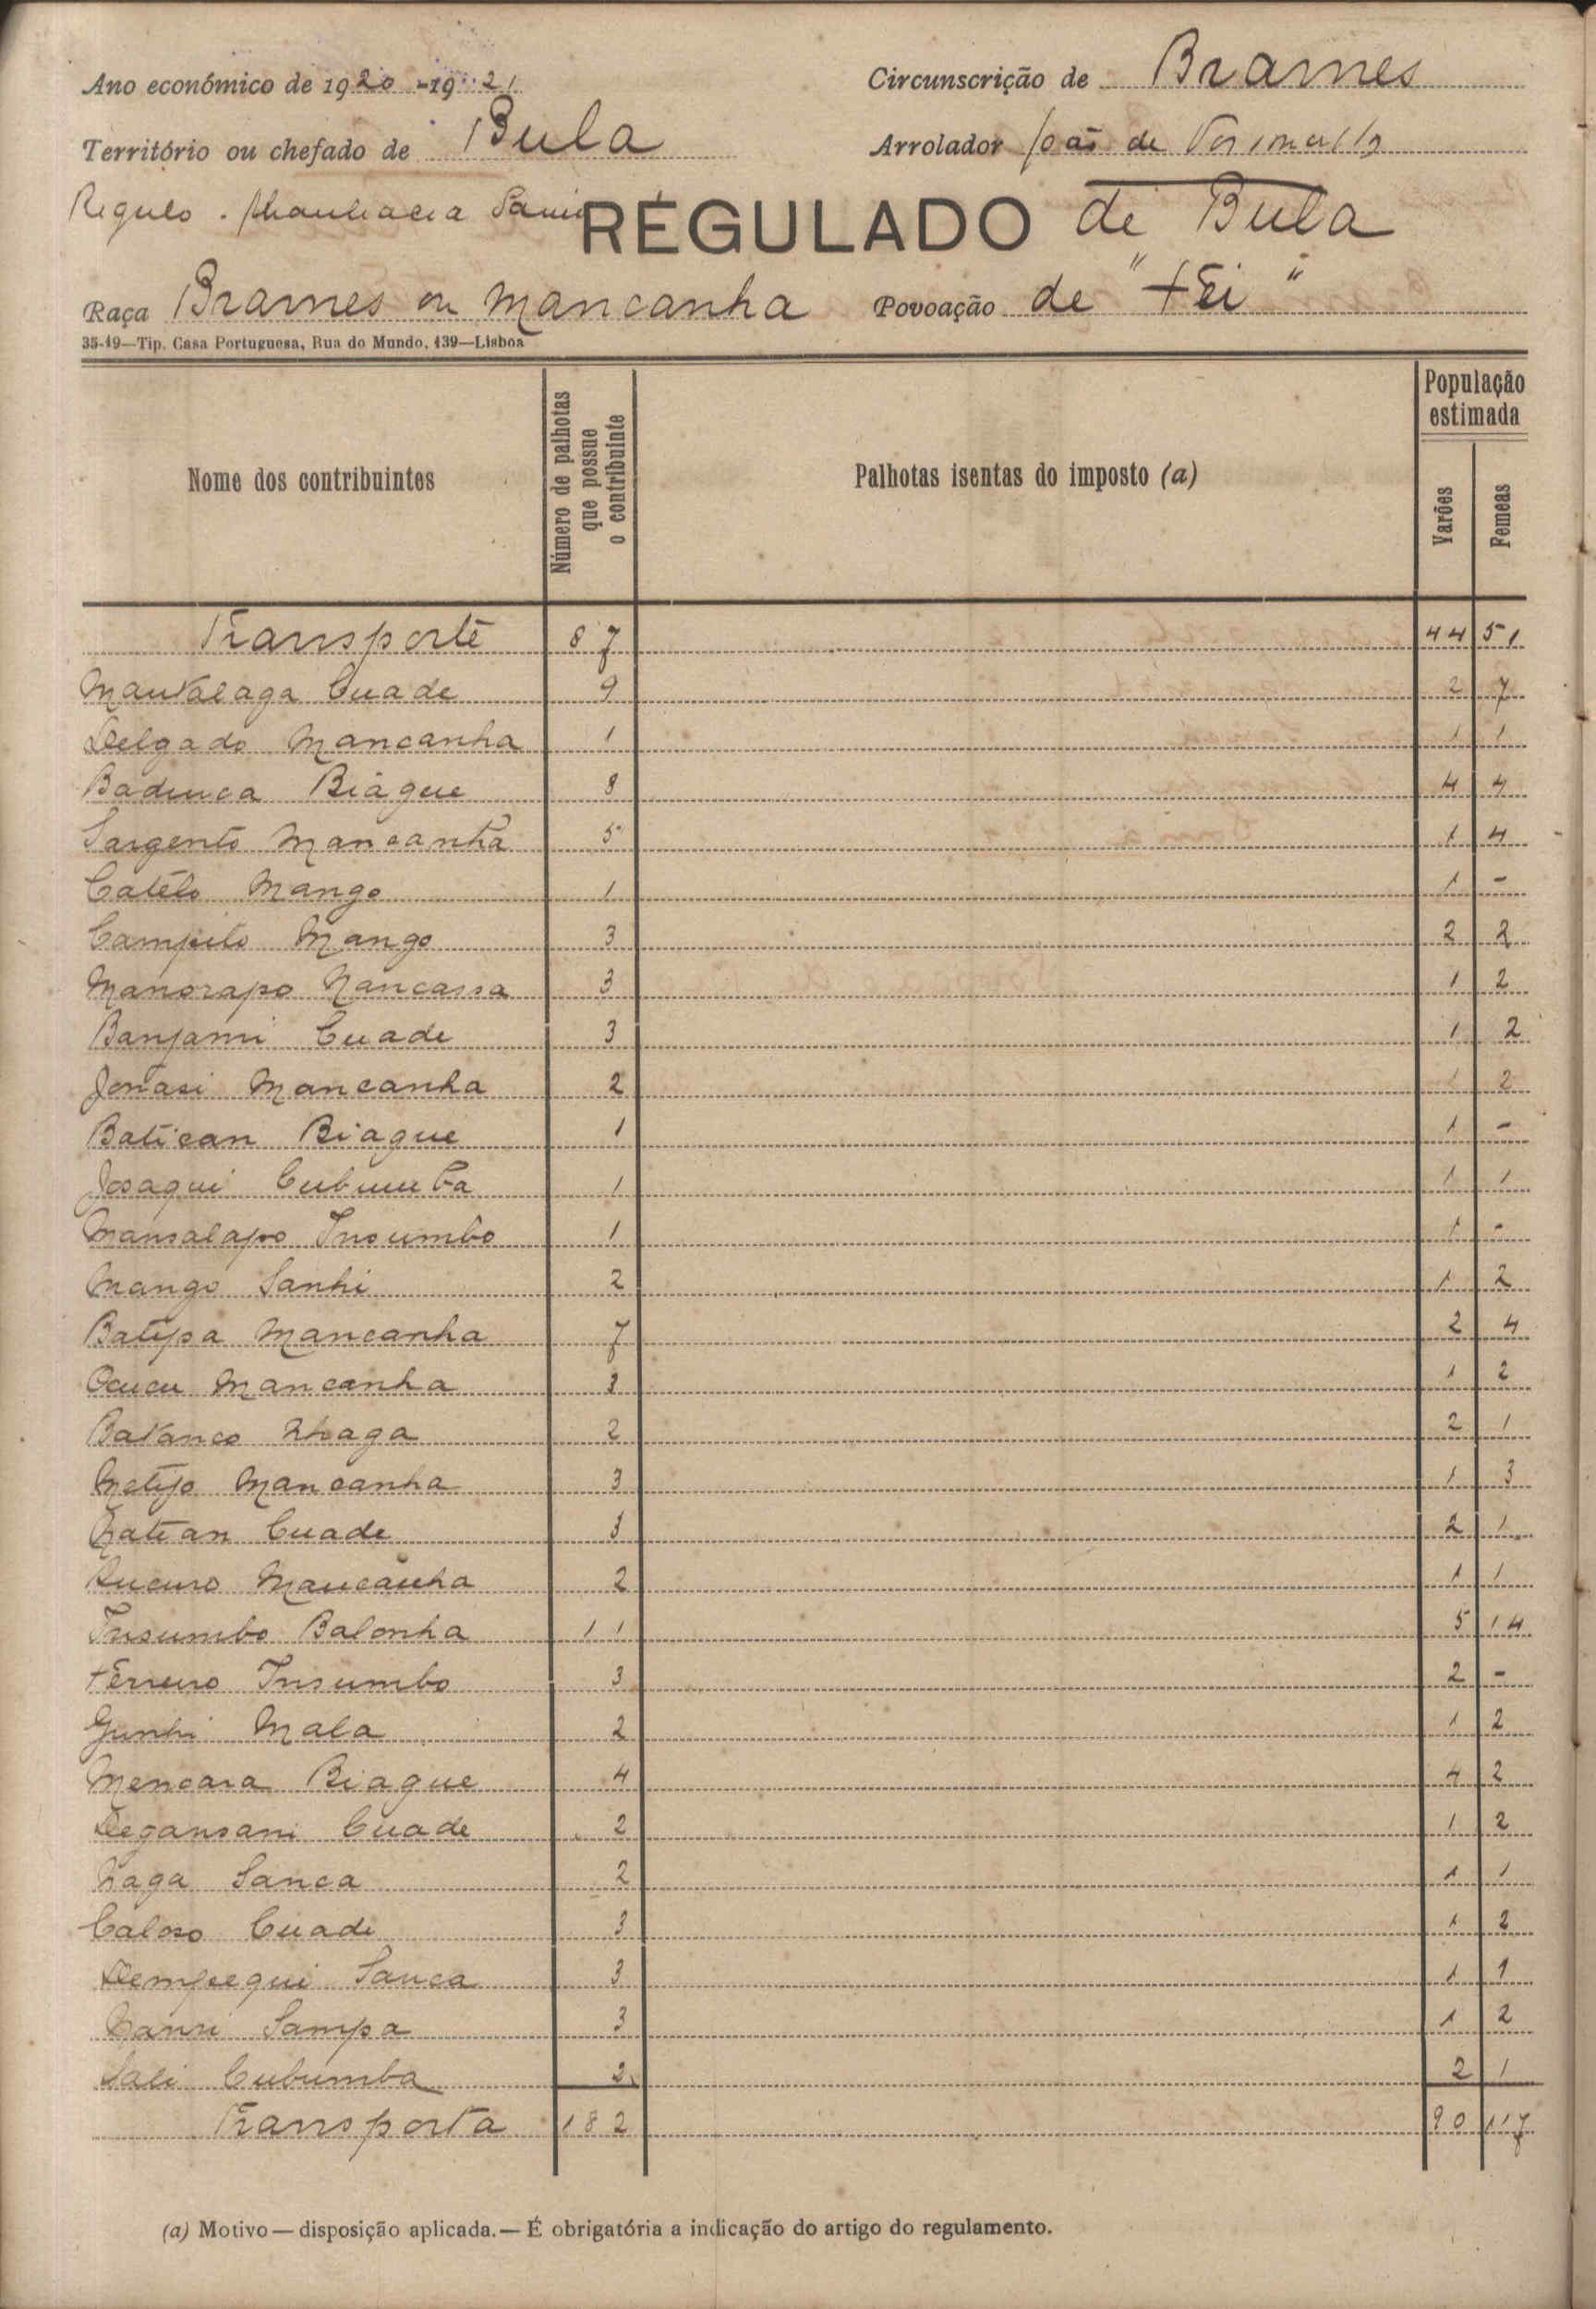 Ano económico de 1920-1921
Circunscrição de Brames
Território ou chefado de Bula
Arrolador João de
Regulo
RÉGULADO de Bula
Raça Brames ou Mancanha
Povoação de "Fei"
35-19—Tip. Casa Portuguesa, Rua do Mundo, 139—Lisboa
Nome dos contribuintes
Número de palhotas que possue o contribuinte
Palhotas isentas do imposto (a)
População estimada
Varões
Femeas
Transporte 87 44 51
Cuade 9 2 7
Delgado Mancanha 1 1 1
Baduca Biágue 8 4 4
Sargento Mancanha 5 1 4
Catélo Mango 1 1 -
Campelo Mango 3 2 2
Manorapo Nancassa 3 1 2
Banjami Cuade 3 1 2
Jonasi Mancanha 2 1 2
Batican Biague 1 1 -
Josaqui Cubumba 1 1 1
Mansalapo Insumbo 1 1 -
Mango Sanhi 2 1 2
Batipa Mancanha 7 2 4
Ocucu Mancanha 3 1 2
Batanco Nhaga 2 2 1
Metijo Mancanha 3 1 3
Natean Cuade 3 2 1
Mancanha 2 1 1
Insumbo Balonha 11 5 14
Ferreiro Insumbo 3 2 -
Gunhi Mala 2 1 2
Mencara Biague 4 4 2
Degansani Cuade 2 1 2
Naga Sanca 2 1 1
Caloso Cuade 3 1 2
Dempequi Sanca 3 1 1
Sampa 3 1 2
Sali Cubumba 2 2 1
Transporta 182 90 117
(a) Motivo—disposição aplicada.—É obrigatória a indicação do artigo do regulamento.